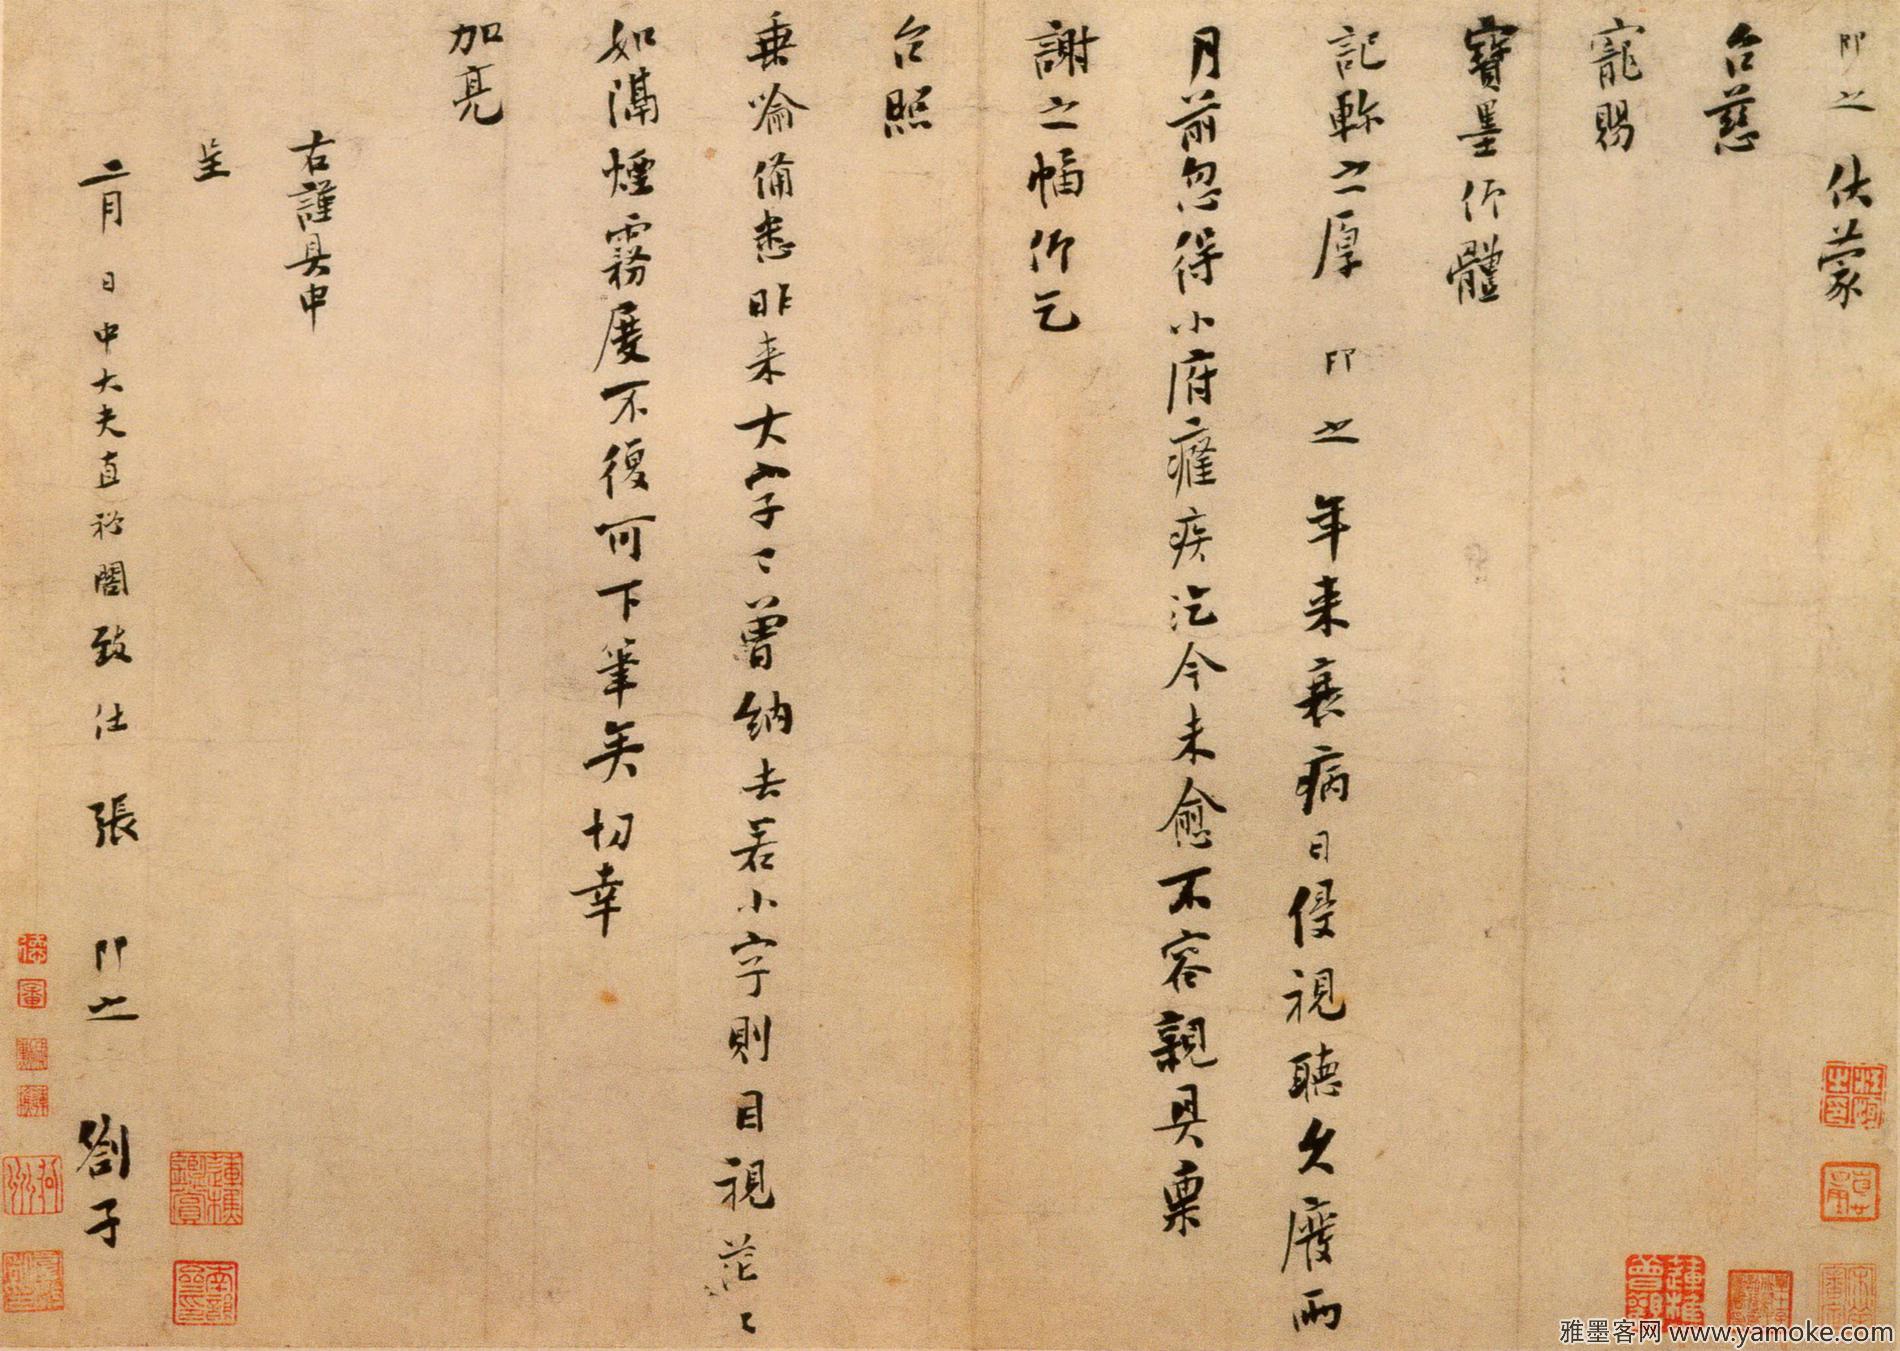 即之伏蒙
台慈
寵賜
寶墨仰體
記軫之厚即之年來衰病日侵視聽久廢兩
月前忽得小府癰疾汔今未愈不容親具稟
謝之幅仰乞
台照
垂喻備悉昨来大字〻曾納去若小字則目視茫〻
如隔煙霧屢不復可下筆矣切幸
加亮
右謹具申
呈
二月日中大夫直祕閣致仕張即之劄子
雅墨客网 www.yamoke.com